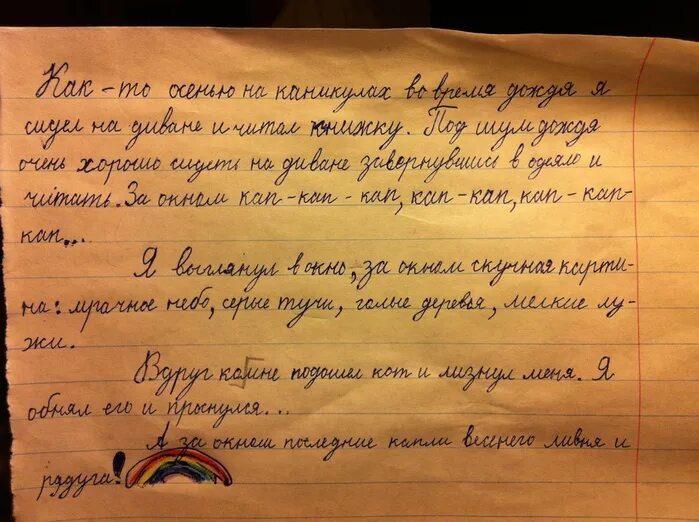 Как-то осенью на каникулах во время дождя я
сидел на диване и читал книжку. Под шум дождя
очень хорошо сидеть на диване завернувшись в одеяло и
читать. За окном кап-кап-кап, кап-кап, кап-кап-
кап...
Я выглянул в окно, за окном скучная карти-
на: мрачное небо, серые тучи, голые деревья, мелкие лу-
жи.
Вдруг ко мне подошел кот и лизнул меня. Я
обнял его и проснулся...
А за окном последние капли весеннего ливня и
радуга!